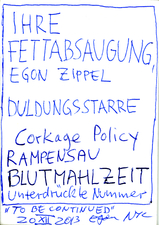 IHRE
FETTABSAUGUNG,
EGON ZIPPEL
DULDUNGSSTARRE
Corkage Policy
RAMPENSAU
BLUTMAHLZEIT
Unterdrückte Nummer
"TO BE CONTINUED"
20 XII 2013 Egon NYC